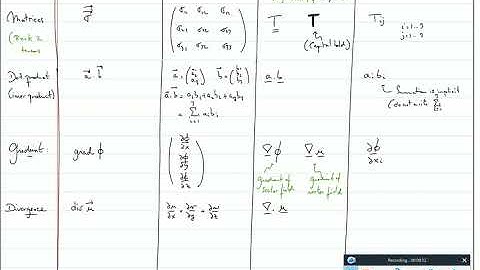 Matrices
(Rank 2
tensors
σ
σ₁₁ σ₁₂ σ₁₃
σ₂₁ σ₂₂ σ₂₃
σ₃₁ σ₃₂ σ₃₃
T
T
(Capital bold)
Tij
i=1-3
j=1-3
Dot product
(inner product)
a . b
a = (a₁ a₂ a₃) b = (b₁ b₂ b₃)
a.b = a₁b₁+a₂b₂+a₃b₃
= Σ aibi
a.b
aibi
Summation is implicit
Gradient:
grad ϕ
∂ϕ/∂x
∂ϕ/∂y
∂ϕ/∂z
∇ϕ
∇u
gradient of
scalar field
gradient of
vector field
∂ϕ/∂xi
Divergence
div u
∂u/∂x + ∂v/∂y + ∂w/∂z
∇.u
Recording...